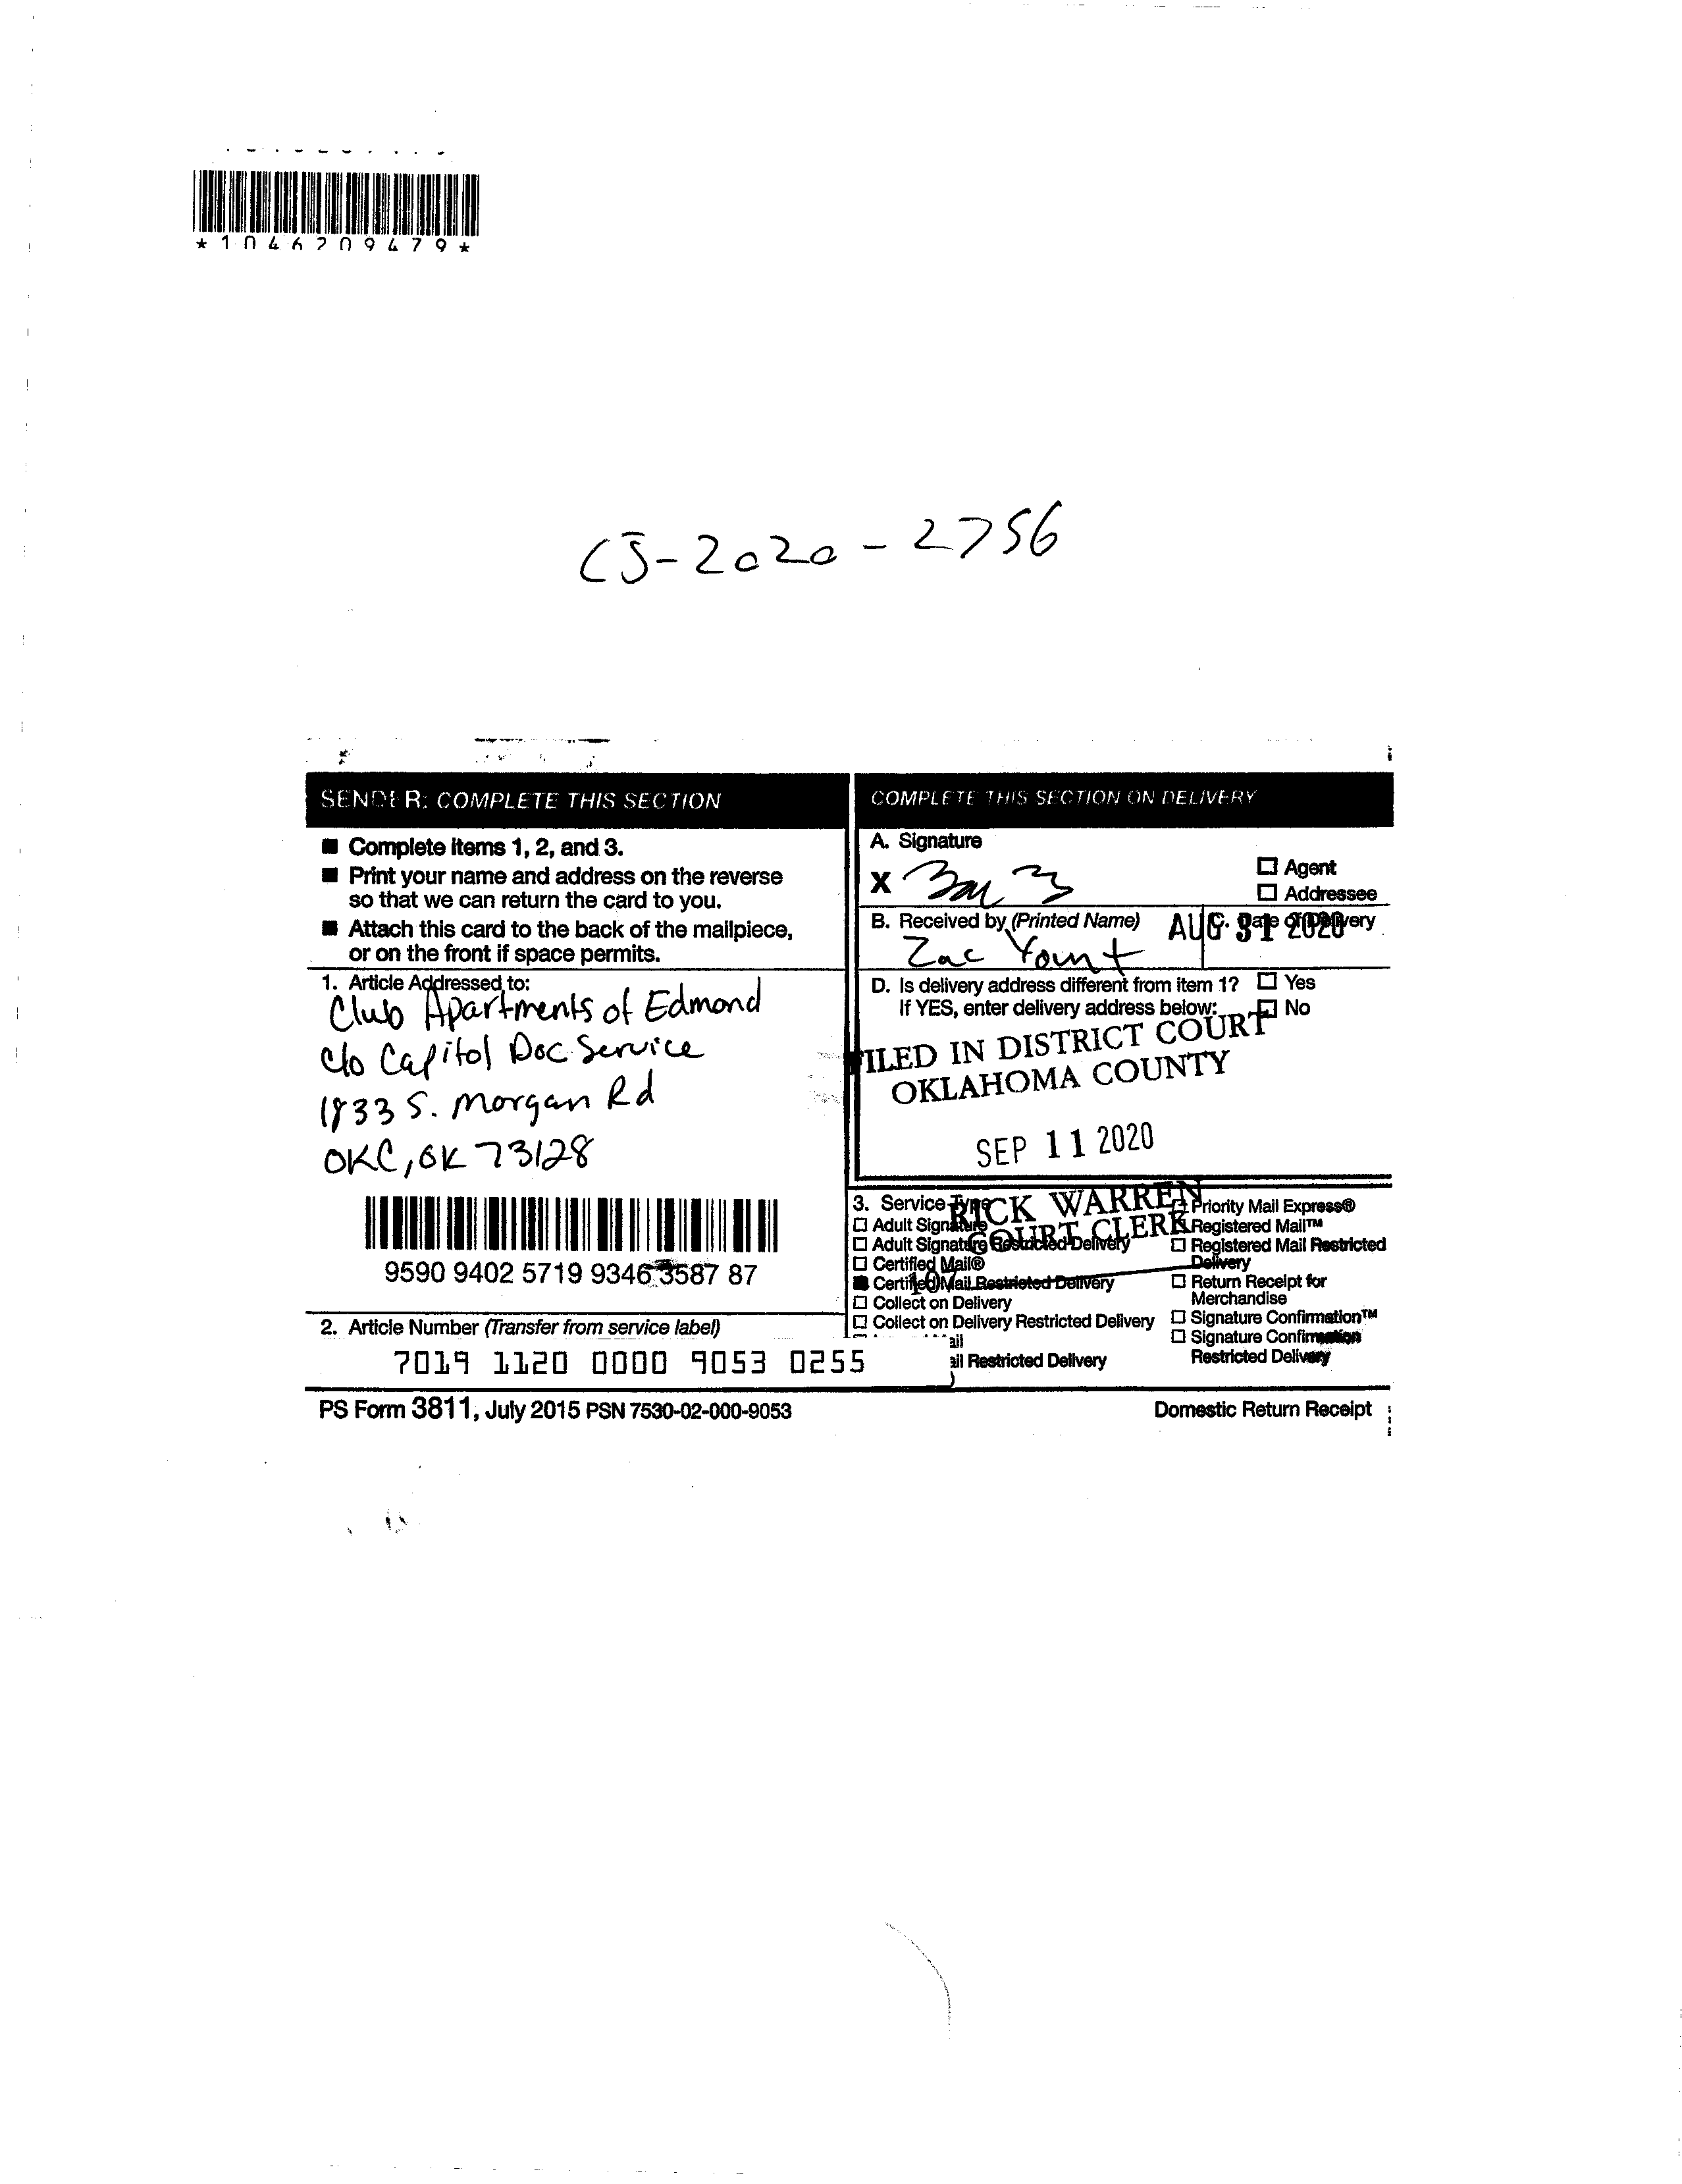 *1046209479*
CJ-2020-2756
SENDER: COMPLETE THIS SECTION
■ Complete items 1, 2, and 3.
■ Print your name and address on the reverse
so that we can return the card to you.
■ Attach this card to the back of the mailpiece,
or on the front if space permits.
1. Article Addressed to:
Club Apartments of Edmond
c/o Capitol Doc Service
1833 S. Morgan Rd
OKC, OK 73128
9590 9402 5719 9346 3587 87
2. Article Number (Transfer from service label)
7019 1120 0000 9053 0255
COMPLETE THIS SECTION ON DELIVERY
A. Signature
X
☐ Agent
☐ Addressee
B. Received by (Printed Name)
Zac Yount
C. Date of Delivery
AUG 31 2020
D. Is delivery address different from item 1? ☐ Yes
If YES, enter delivery address below: ☐ No
FILED IN DISTRICT COURT
OKLAHOMA COUNTY
SEP 11 2020
RICK WARREN
COURT CLERK
3. Service Type
☐ Adult Signature
☐ Adult Signature Restricted Delivery
☐ Certified Mail®
■ Certified Mail Restricted Delivery
☐ Collect on Delivery
☐ Collect on Delivery Restricted Delivery
ail
ail Restricted Delivery
☐ Priority Mail Express®
☐ Registered Mail™
☐ Registered Mail Restricted
Delivery
☐ Return Receipt for
Merchandise
☐ Signature Confirmation™
☐ Signature Confirmation
Restricted Delivery
PS Form 3811, July 2015 PSN 7530-02-000-9053
Domestic Return Receipt